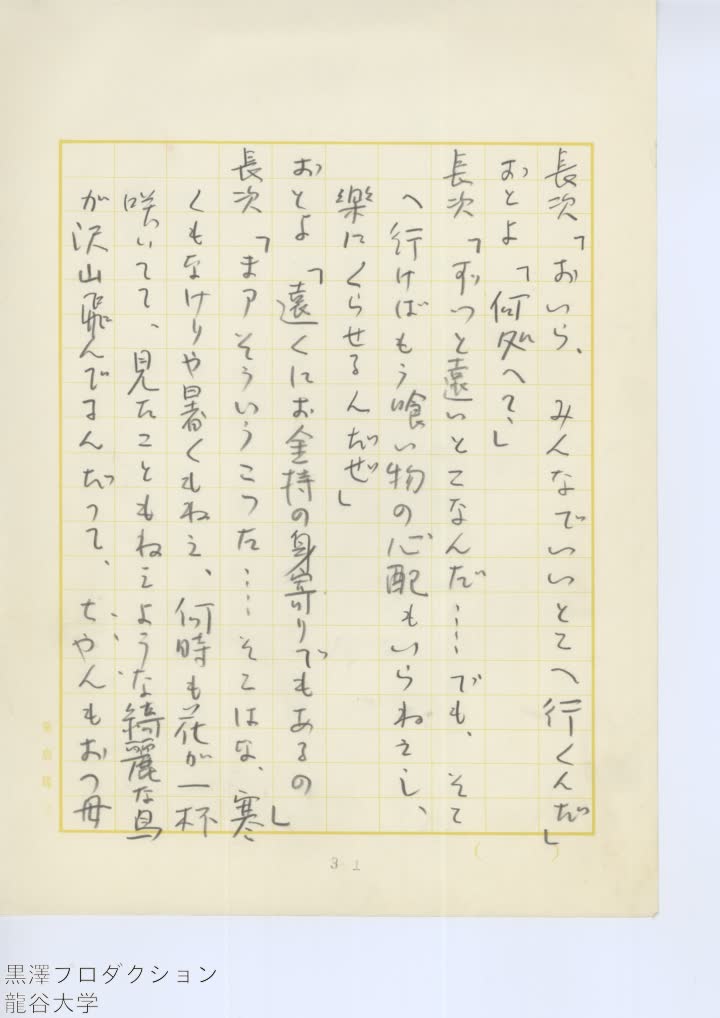 長次「おいら、みんなでいいとこへ行くんだ」
おとよ「何処へ?」
長次「ずっと遠いとこなんだ……でも、そこ
へ行けばもう喰い物の心配もいらねえし、
楽にくらせるんだぜ」
おとよ「遠くにお金持の身寄りでもあるの」
長次「まアそういうこった……そこはな、寒
くもなけりや暑くもねえ、何時も花が一杯
咲いてて、見たこともねえような綺麗な鳥
が沢山飛んでるんだって、ちゃんもおっ母
31
黒澤プロダクション
龍谷大学